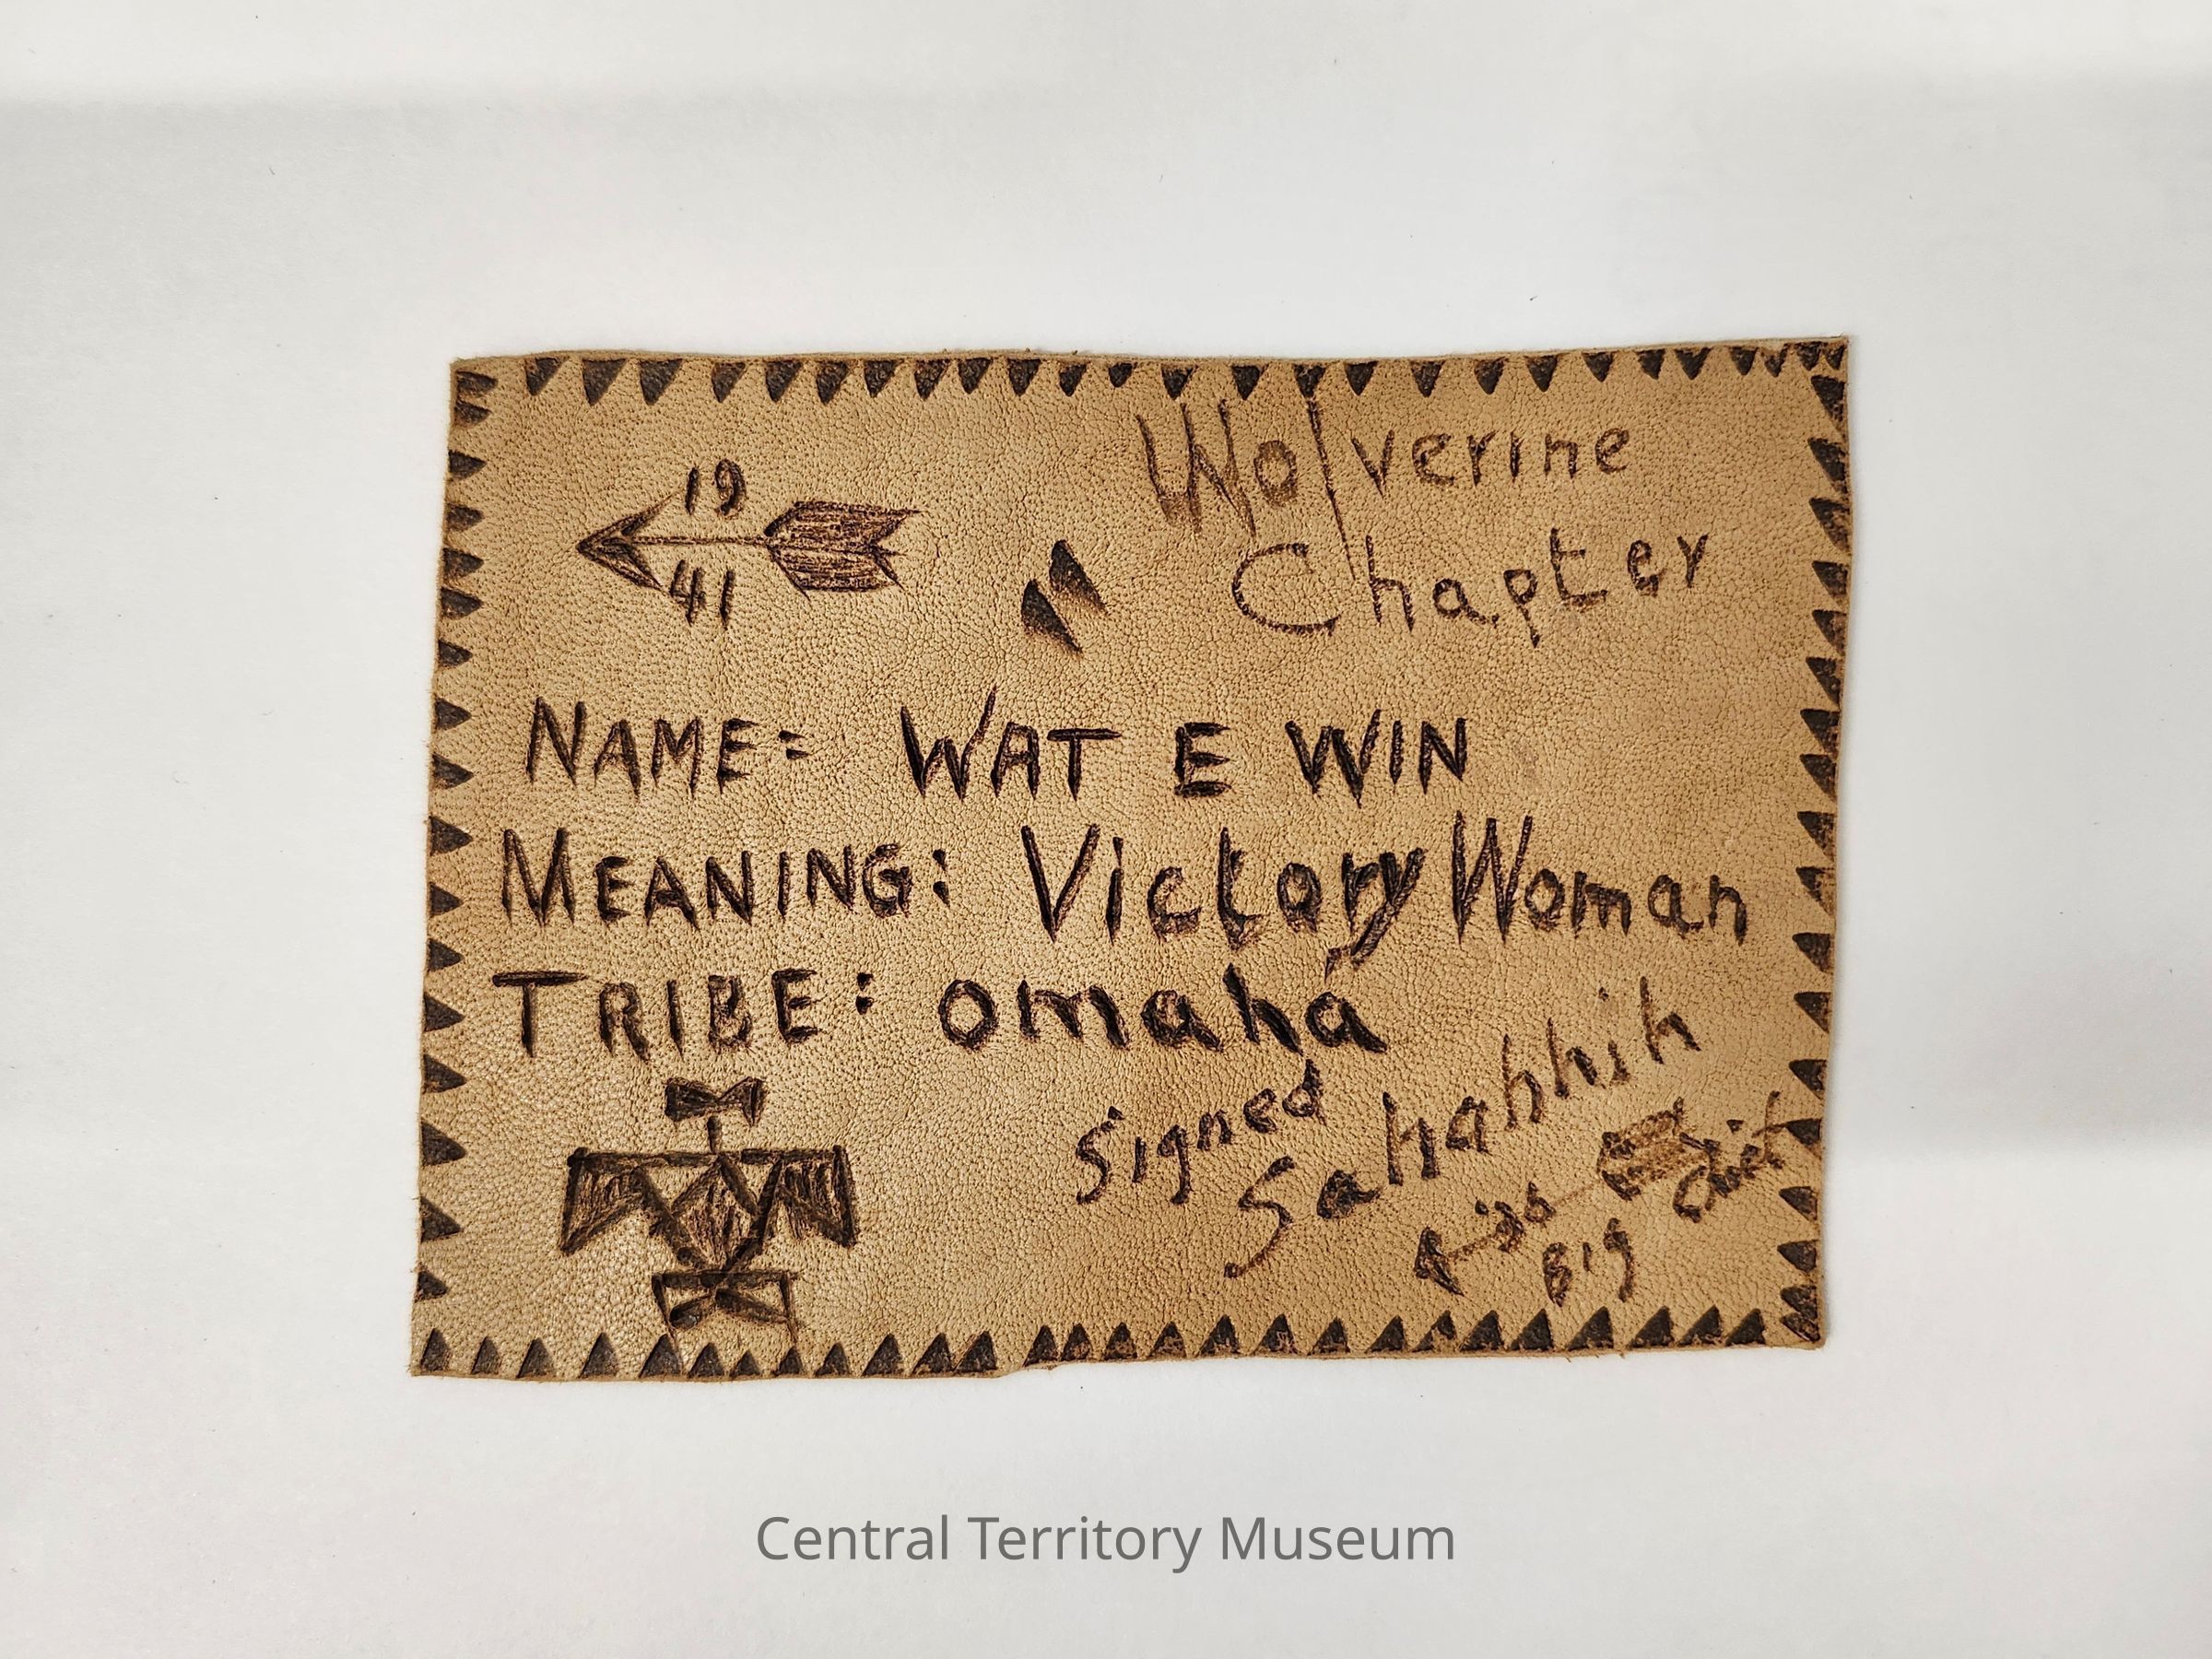 19
41
Wolverine
Chapter
NAME: WAT E WIN
MEANING: Victory Woman
TRIBE: omaha
Signed
Sahahhih
Big
Chief
Central Territory Museum